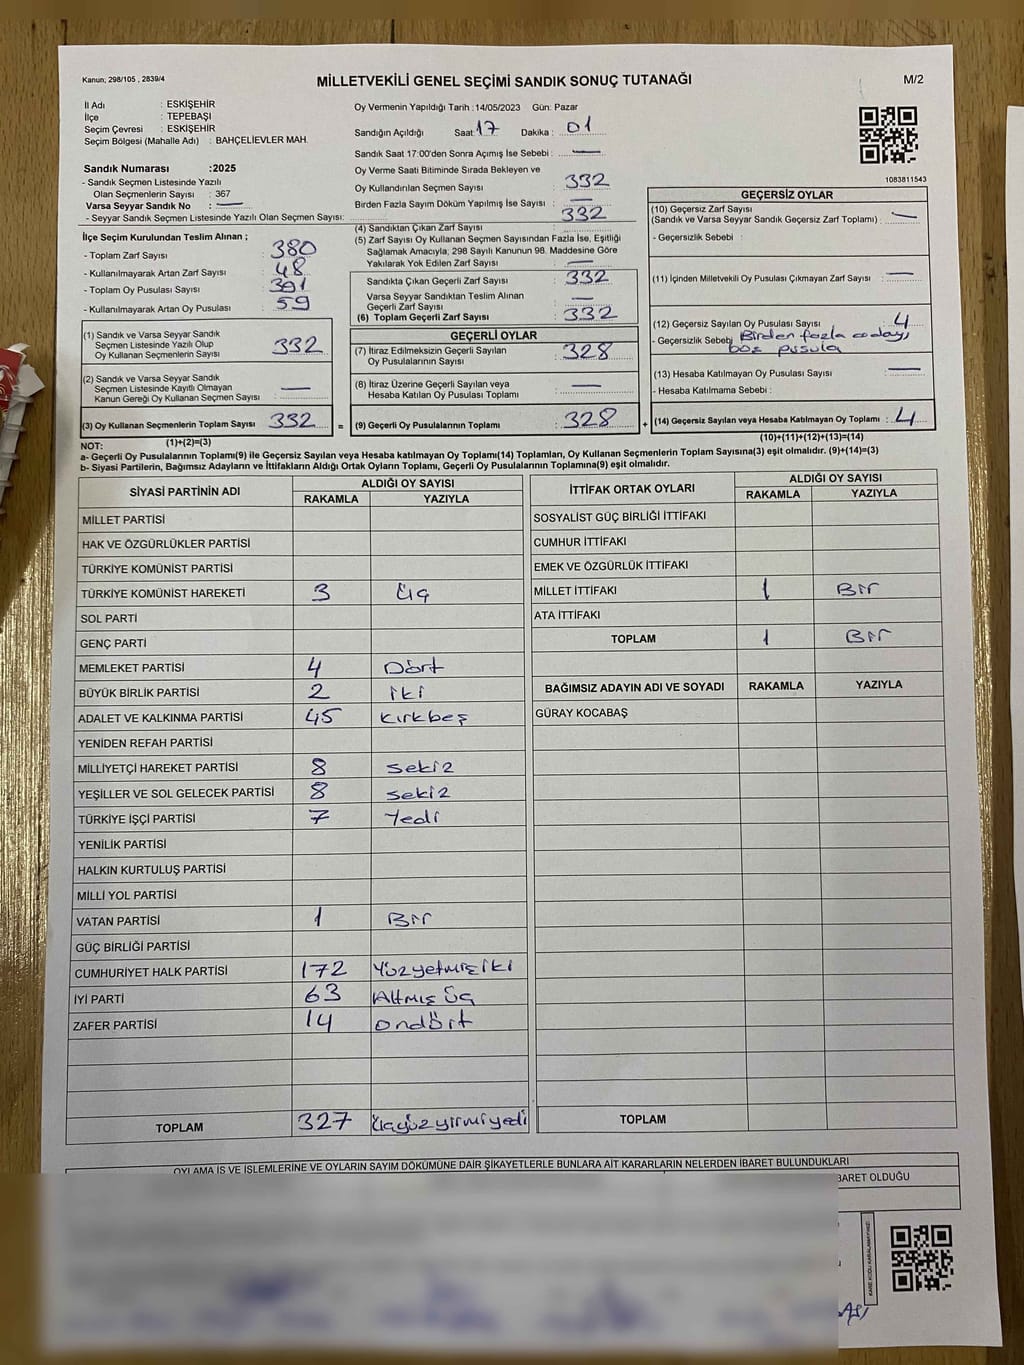 Kanun; 298/105 , 2839/4
MİLLETVEKİLİ GENEL SEÇİMİ SANDIK SONUÇ TUTANAĞI
M/2
İl Adı : ESKİŞEHİR
İlçe : TEPEBAŞI
Seçim Çevresi : ESKİŞEHİR
Seçim Bölgesi (Mahalle Adı) : BAHÇELİEVLER MAH.
Sandık Numarası :2025
- Sandık Seçmen Listesinde Yazılı
Olan Seçmenlerin Sayısı : 367
Varsa Seyyar Sandık No : —
- Seyyar Sandık Seçmen Listesinde Yazılı Olan Seçmen Sayısı:
Oy Vermenin Yapıldığı Tarih : 14/05/2023 Gün: Pazar
Sandığın Açıldığı Saat: 17 Dakika : 01
Sandık Saat 17:00'den Sonra Açımış İse Sebebi : —
Oy Verme Saati Bitiminde Sırada Bekleyen ve
Oy Kullandırılan Seçmen Sayısı : 332
Birden Fazla Sayım Döküm Yapılmış İse Sayısı : —
1083811543
İlçe Seçim Kurulundan Teslim Alınan ;
- Toplam Zarf Sayısı : 380
- Kullanılmayarak Artan Zarf Sayısı : 48
- Toplam Oy Pusulası Sayısı : 391
- Kullanılmayarak Artan Oy Pusulası : 59
(1) Sandık ve Varsa Seyyar Sandık
Seçmen Listesinde Yazılı Olup
Oy Kullanan Seçmenlerin Sayısı : 332
(2) Sandık ve Varsa Seyyar Sandık
Seçmen Listesinde Kayıtlı Olmayan
Kanun Gereği Oy Kullanan Seçmen Sayısı : —
(3) Oy Kullanan Seçmenlerin Toplam Sayısı : 332
(1)+(2)=(3)
(4) Sandıktan Çıkan Zarf Sayısı : 332
(5) Zarf Sayısı Oy Kullanan Seçmen Sayısından Fazla İse, Eşitliği
Sağlamak Amacıyla; 298 Sayılı Kanunun 98. Maddesine Göre
Yakılarak Yok Edilen Zarf Sayısı : —
Sandıkta Çıkan Geçerli Zarf Sayısı : 332
Varsa Seyyar Sandıktan Teslim Alınan
Geçerli Zarf Sayısı : —
(6) Toplam Geçerli Zarf Sayısı : 332
GEÇERLİ OYLAR
(7) İtiraz Edilmeksizin Geçerli Sayılan
Oy Pusulalarının Sayısı : 328
(8) İtiraz Üzerine Geçerli Sayılan veya
Hesaba Katılan Oy Pusulası Toplamı : —
= (9) Geçerli Oy Pusulalarının Toplamı : 328 +
GEÇERSİZ OYLAR
(10) Geçersiz Zarf Sayısı
(Sandık ve Varsa Seyyar Sandık Geçersiz Zarf Toplamı) : —
- Geçersizlik Sebebi :
(11) İçinden Milletvekili Oy Pusulası Çıkmayan Zarf Sayısı : —
(12) Geçersiz Sayılan Oy Pusulası Sayısı : 4
- Geçersizlik Sebebi Birden fazla aday,
boş pusula
(13) Hesaba Katılmayan Oy Pusulası Sayısı : —
- Hesaba Katılmama Sebebi :
(14) Geçersiz Sayılan veya Hesaba Katılmayan Oy Toplamı : 4
(10)+(11)+(12)+(13)=(14)
NOT:
a- Geçerli Oy Pusulasının Toplamı(9) ile Geçersiz Sayılan veya Hesaba katılmayan Oy Toplamı(14) Toplamları, Oy Kullanan Seçmenlerin Toplam Sayısına(3) eşit olmalıdır. (9)+(14)=(3)
b- Siyasi Partilerin, Bağımsız Adayların ve İttifakların Aldığı Ortak Oyların Toplamı, Geçerli Oy Pusulalarının Toplamına(9) eşit olmalıdır.
SİYASİ PARTİNİN ADI ALDIĞI OY SAYISI
RAKAMLA YAZIYLA
MİLLET PARTİSİ
HAK VE ÖZGÜRLÜKLER PARTİSİ
TÜRKİYE KOMÜNİST PARTİSİ
TÜRKİYE KOMÜNİST HAREKETİ 3 Üç
SOL PARTİ
GENÇ PARTİ
MEMLEKET PARTİSİ 4 Dört
BÜYÜK BİRLİK PARTİSİ 2 iki
ADALET VE KALKINMA PARTİSİ 45 kırkbeş
YENİDEN REFAH PARTİSİ
MİLLİYETÇİ HAREKET PARTİSİ 8 sekiz
YEŞİLLER VE SOL GELECEK PARTİSİ 8 sekiz
TÜRKİYE İŞÇİ PARTİSİ 7 Yedi
YENİLİK PARTİSİ
HALKIN KURTULUŞ PARTİSİ
MİLLİ YOL PARTİSİ
VATAN PARTİSİ 1 Bir
GÜÇ BİRLİĞİ PARTİSİ
CUMHURİYET HALK PARTİSİ 172 Yüzyetmişiki
İYİ PARTİ 63 Altmış üç
ZAFER PARTİSİ 14 ondört
TOPLAM 327 Üçyüzyirmiyedi
İTTİFAK ORTAK OYLARI ALDIĞI OY SAYISI
RAKAMLA YAZIYLA
SOSYALİST GÜÇ BİRLİĞİ İTTİFAKI
CUMHUR İTTİFAKI
EMEK VE ÖZGÜRLÜK İTTİFAKI
MİLLET İTTİFAKI 1 Bir
ATA İTTİFAKI
TOPLAM 1 Bir
BAĞIMSIZ ADAYIN ADI VE SOYADI RAKAMLA YAZIYLA
GÜRAY KOCABAŞ
TOPLAM
OYLAMA İŞ VE İŞLEMLERİNE VE OYLARIN SAYIM DÖKÜMÜNE DAİR ŞİKAYETLERLE BUNLARA AİT KARARLARIN NELERDEN İBARET BULUNDUKLARI
BARET OLDUĞU
KARE KODU KARALAMAYINIZ!